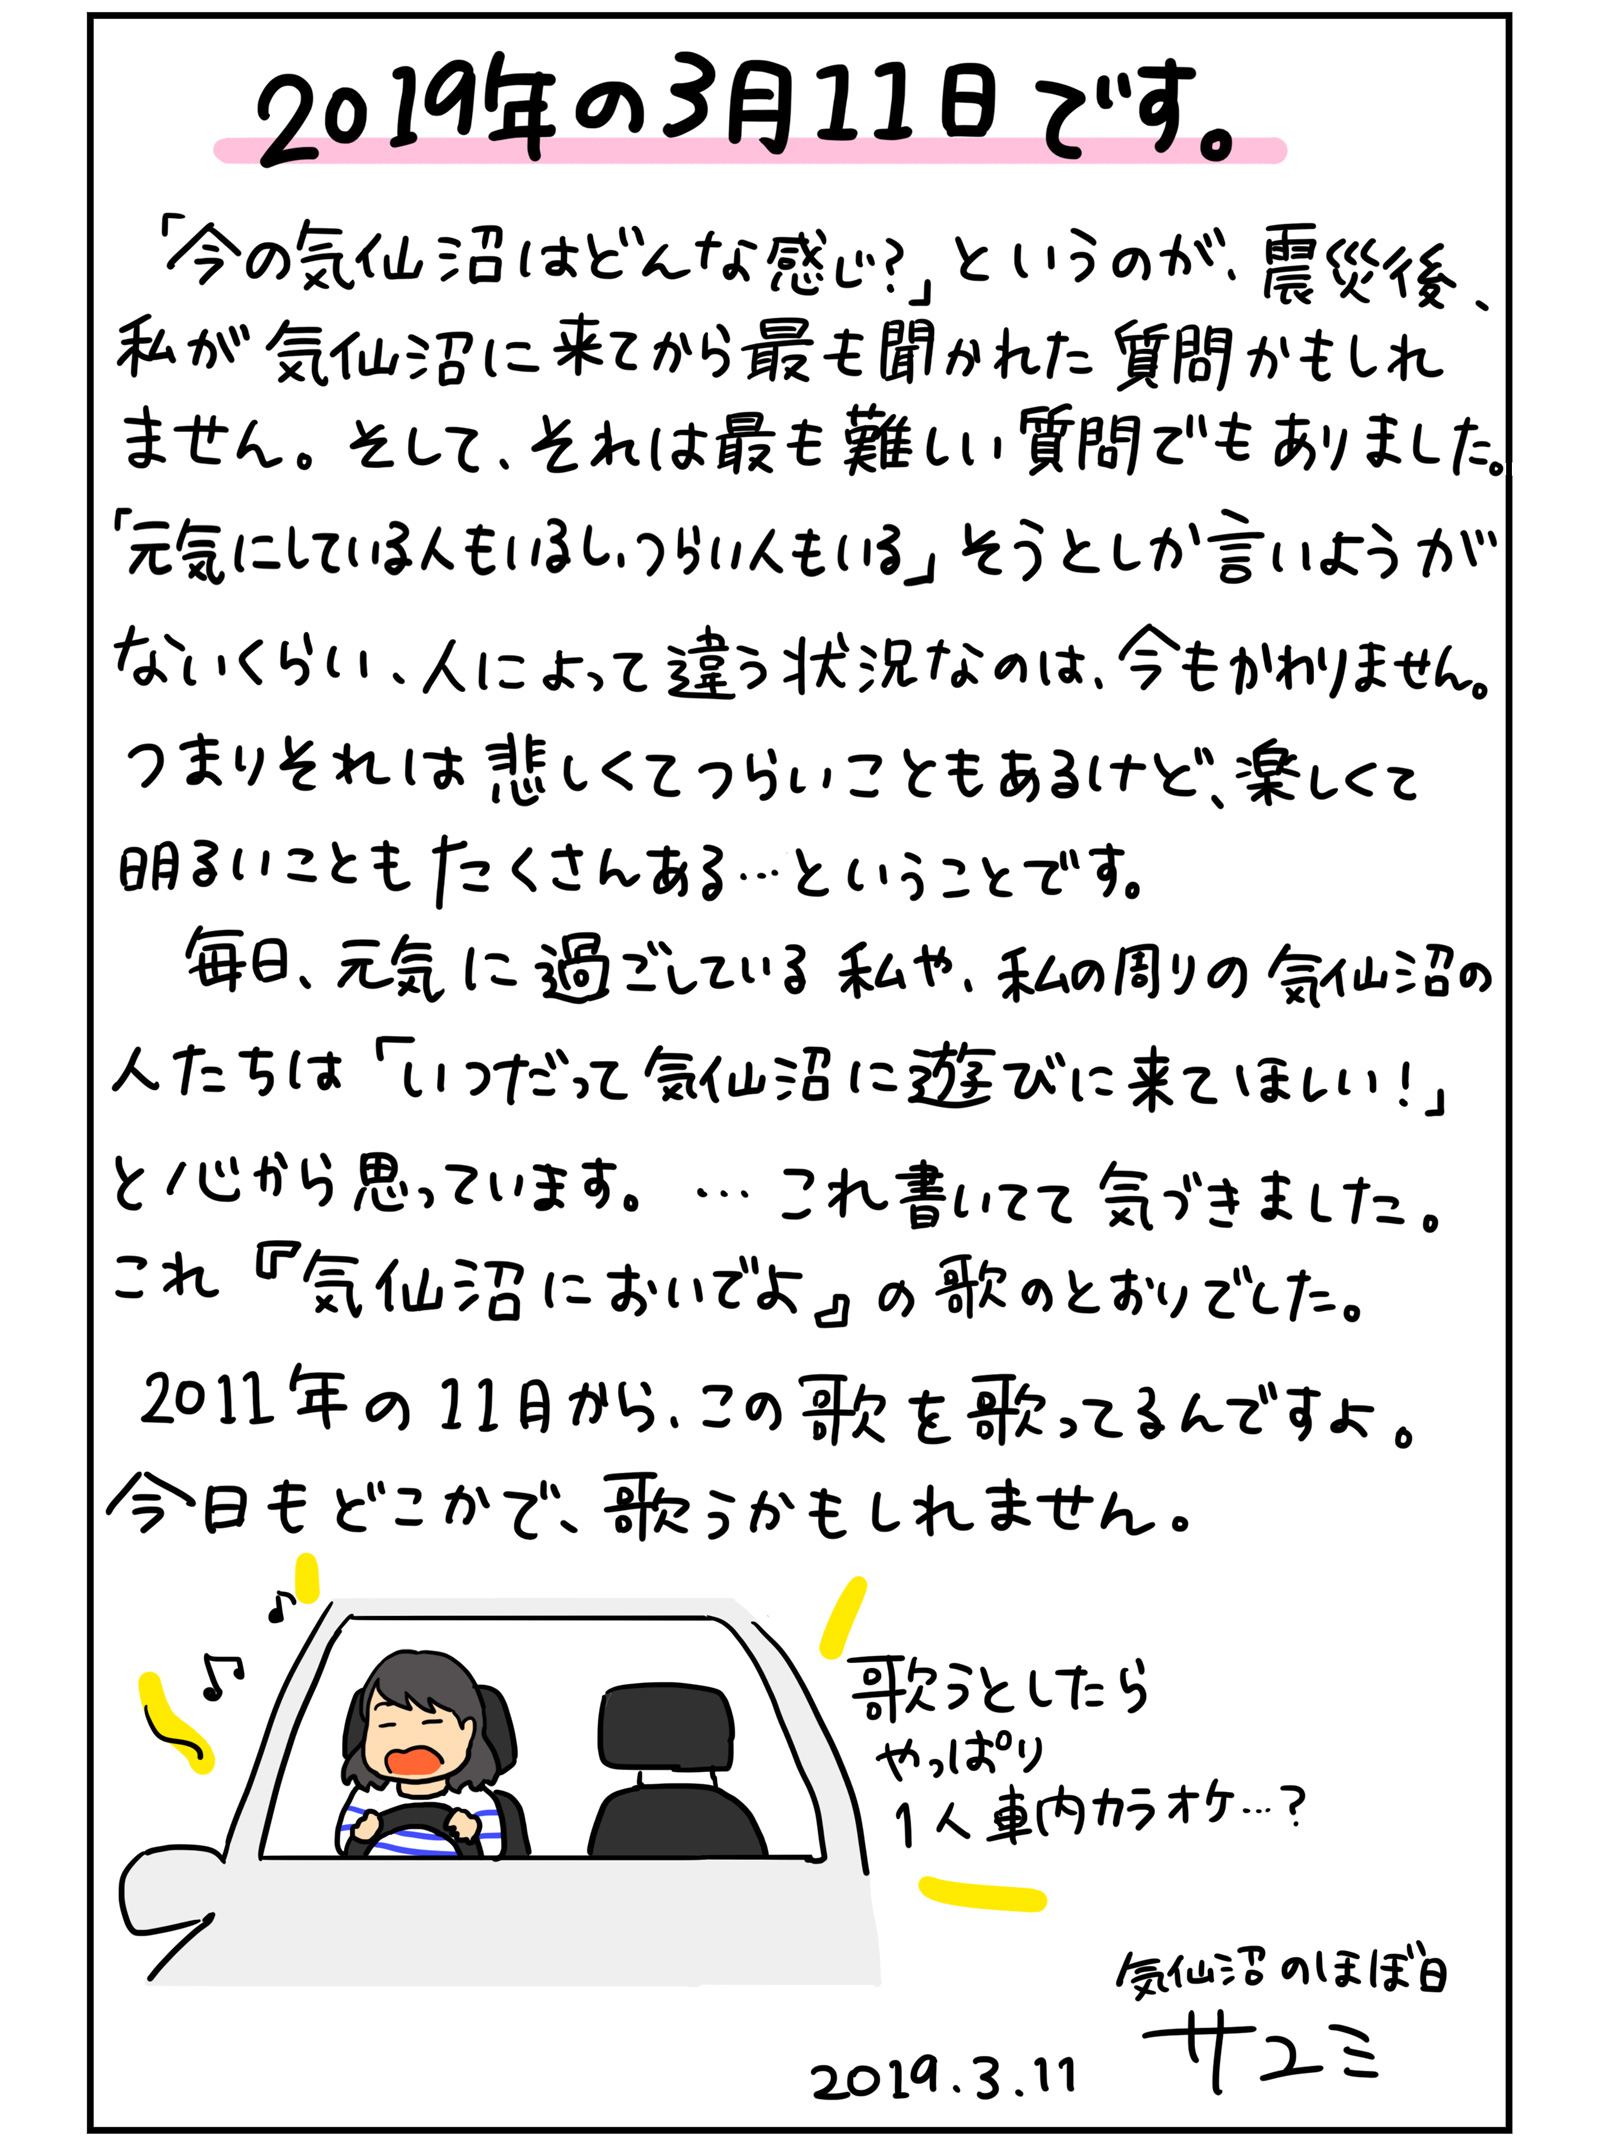 2019年の3月11日です。
「今の気仙沼はどんな感じ?」というのが、震災後、
私が気仙沼に来てから最も聞かれた質問かもしれ
ません。そして、それは最も難しい質問でもありました。
「元気にしている人もいるし、つらい人もいる」そうとしか言いようが
ないくらい、人によって違う状況なのは、今もかわりません。
つまりそれは悲しくてつらいこともあるけど、楽しくて
明るいこともたくさんある…ということです。
毎日、元気に過ごしている私や、私の周りの気仙沼の
人たちは「いつだって気仙沼に遊びに来てほしい!」
と心から思っています。…これ書いてて気づきました。
これ『気仙沼においでよ』の歌のとおりでした。
2011年の11月から、この歌を歌ってるんですよ。
今日もどこかで、歌うかもしれません。
歌うとしたら
やっぱり
1人車内カラオケ…?
気仙沼のほぼ日
サユミ
2019.3.11